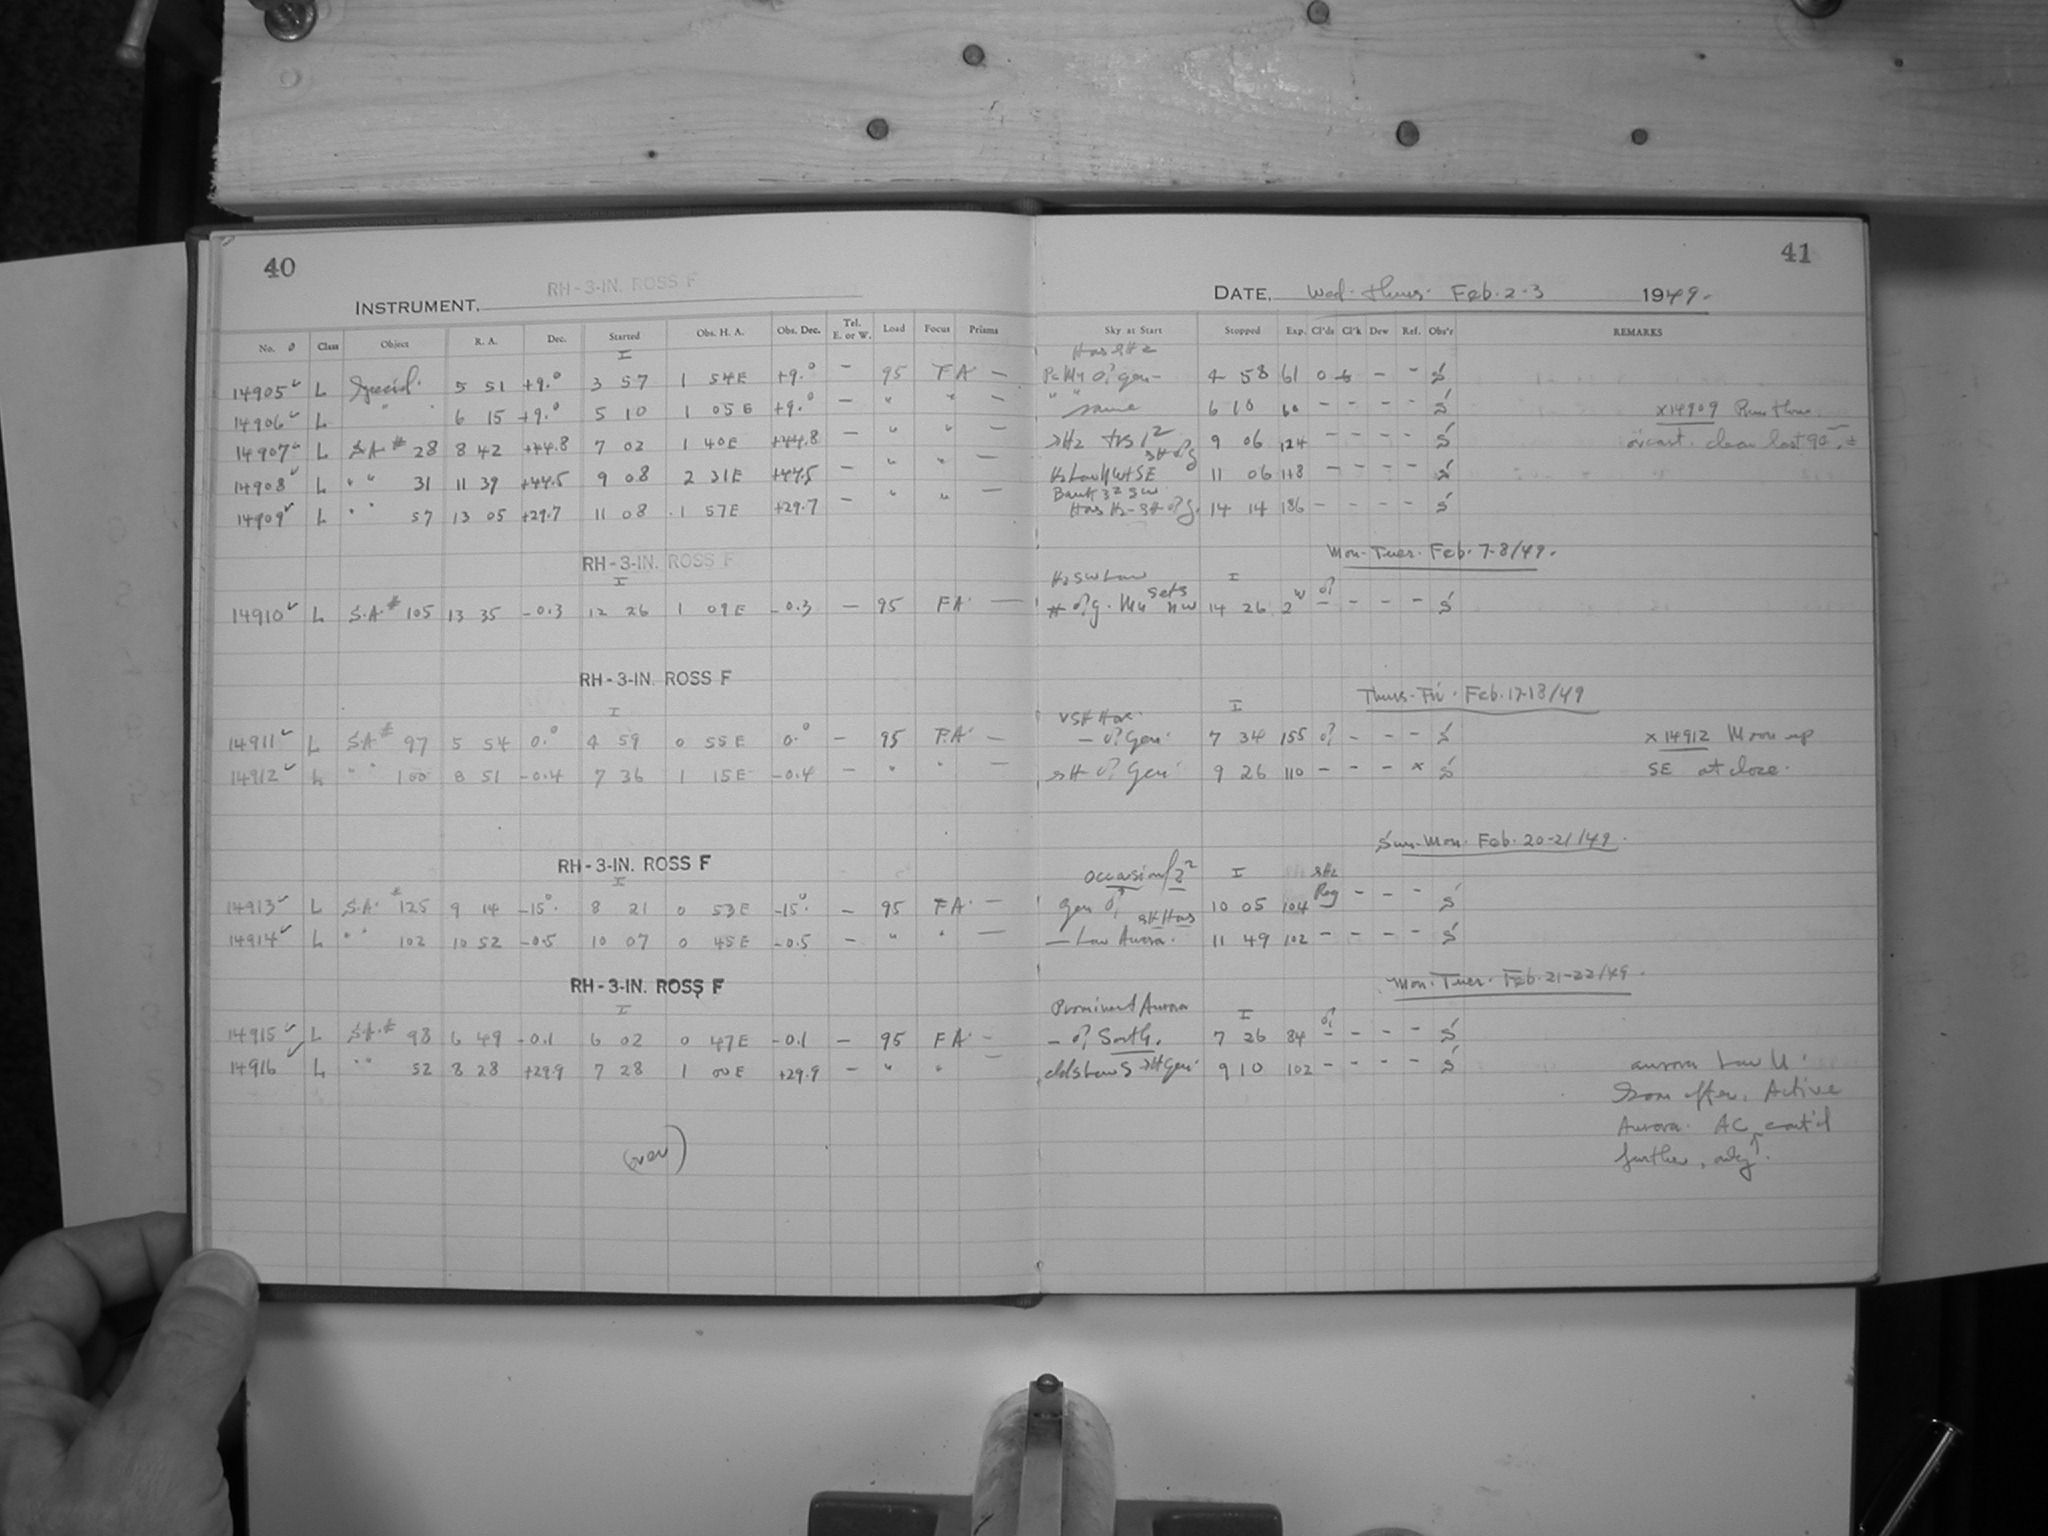 40
RH-3-IN. ROSS F
INSTRUMENT,
No. Class Object R. A. Dec. Started Obs. H. A. Obs. Dec. Tel. E. or W. Load Focus Prisms
I
14905 L Special. 5 51 +9.° 3 57 1 54E +9.° — 95 FA —
14906 L " " 6 15 +9.° 5 10 1 05E +9.° — " " —
14907 L S.A.# 28 8 42 +44.8 7 02 1 40E +44.8 — " " —
14908 L " " 31 11 39 +44.5 9 08 2 31E +44.5 — " " —
14909 L " " 57 13 05 +29.7 11 08 1 57E +29.7 — " " —
RH-3-IN. ROSS F
I
14910 L S.A.# 105 13 35 -0.3 12 26 1 09E -0.3 — 95 FA —
RH-3-IN. ROSS F
I
14911 L S.A.# 97 5 54 0.° 4 59 0 55E 0.° — 95 FA —
14912 L " " 100 8 51 -0.4 7 36 1 15E -0.4 — " " —
RH-3-IN. ROSS F
I
14913 L S.A.# 125 9 14 -15°. 8 21 0 53E -15°. — 95 FA —
14914 L " " 102 10 52 -0.5 10 07 0 45E -0.5 — " " —
RH-3-IN. ROSS F
I
14915 L S.A.# 98 6 49 -0.1 6 02 0 47E -0.1 — 95 FA —
14916 L " " 52 8 28 +29.9 7 28 1 00E +29.9 — " " —
(over)
41
DATE, Wed-Thurs. Feb. 2-3 1949.
Sky at Start Stopped Exp. Cl'ds Cl'k Dew Ref. Obs'r REMARKS
4 58 61 — — S
" " same 6 10 60 — — — — S x14909
9 06 124 — — — — S clear last 90
Hz Low NW+SE 11 06 118 — — — — S
Bank SW
14 14 186 — — — — S
Mon-Tues. Feb. 7-8/49.
Hz SW Low I
sets NW 14 26 — — — — S
Thurs-Fri. Feb. 17-18/49
I
Gen. 7 34 155 — — — S x14912 Moon up
Gen. 9 26 110 — — — x S SE at close.
Sun-Mon. Feb. 20-21/49.
I
Gen 10 05 104 — — — S
— Low Aurora. 11 49 102 — — — — S
Mon-Tues. Feb. 21-22/49.
Prominent Aurora I
South. 7 26 84 — — — — S
clds Low S Gen. 9 10 102 — — — — S
aurora Low
Active
Aurora. AC cont'd
further, only